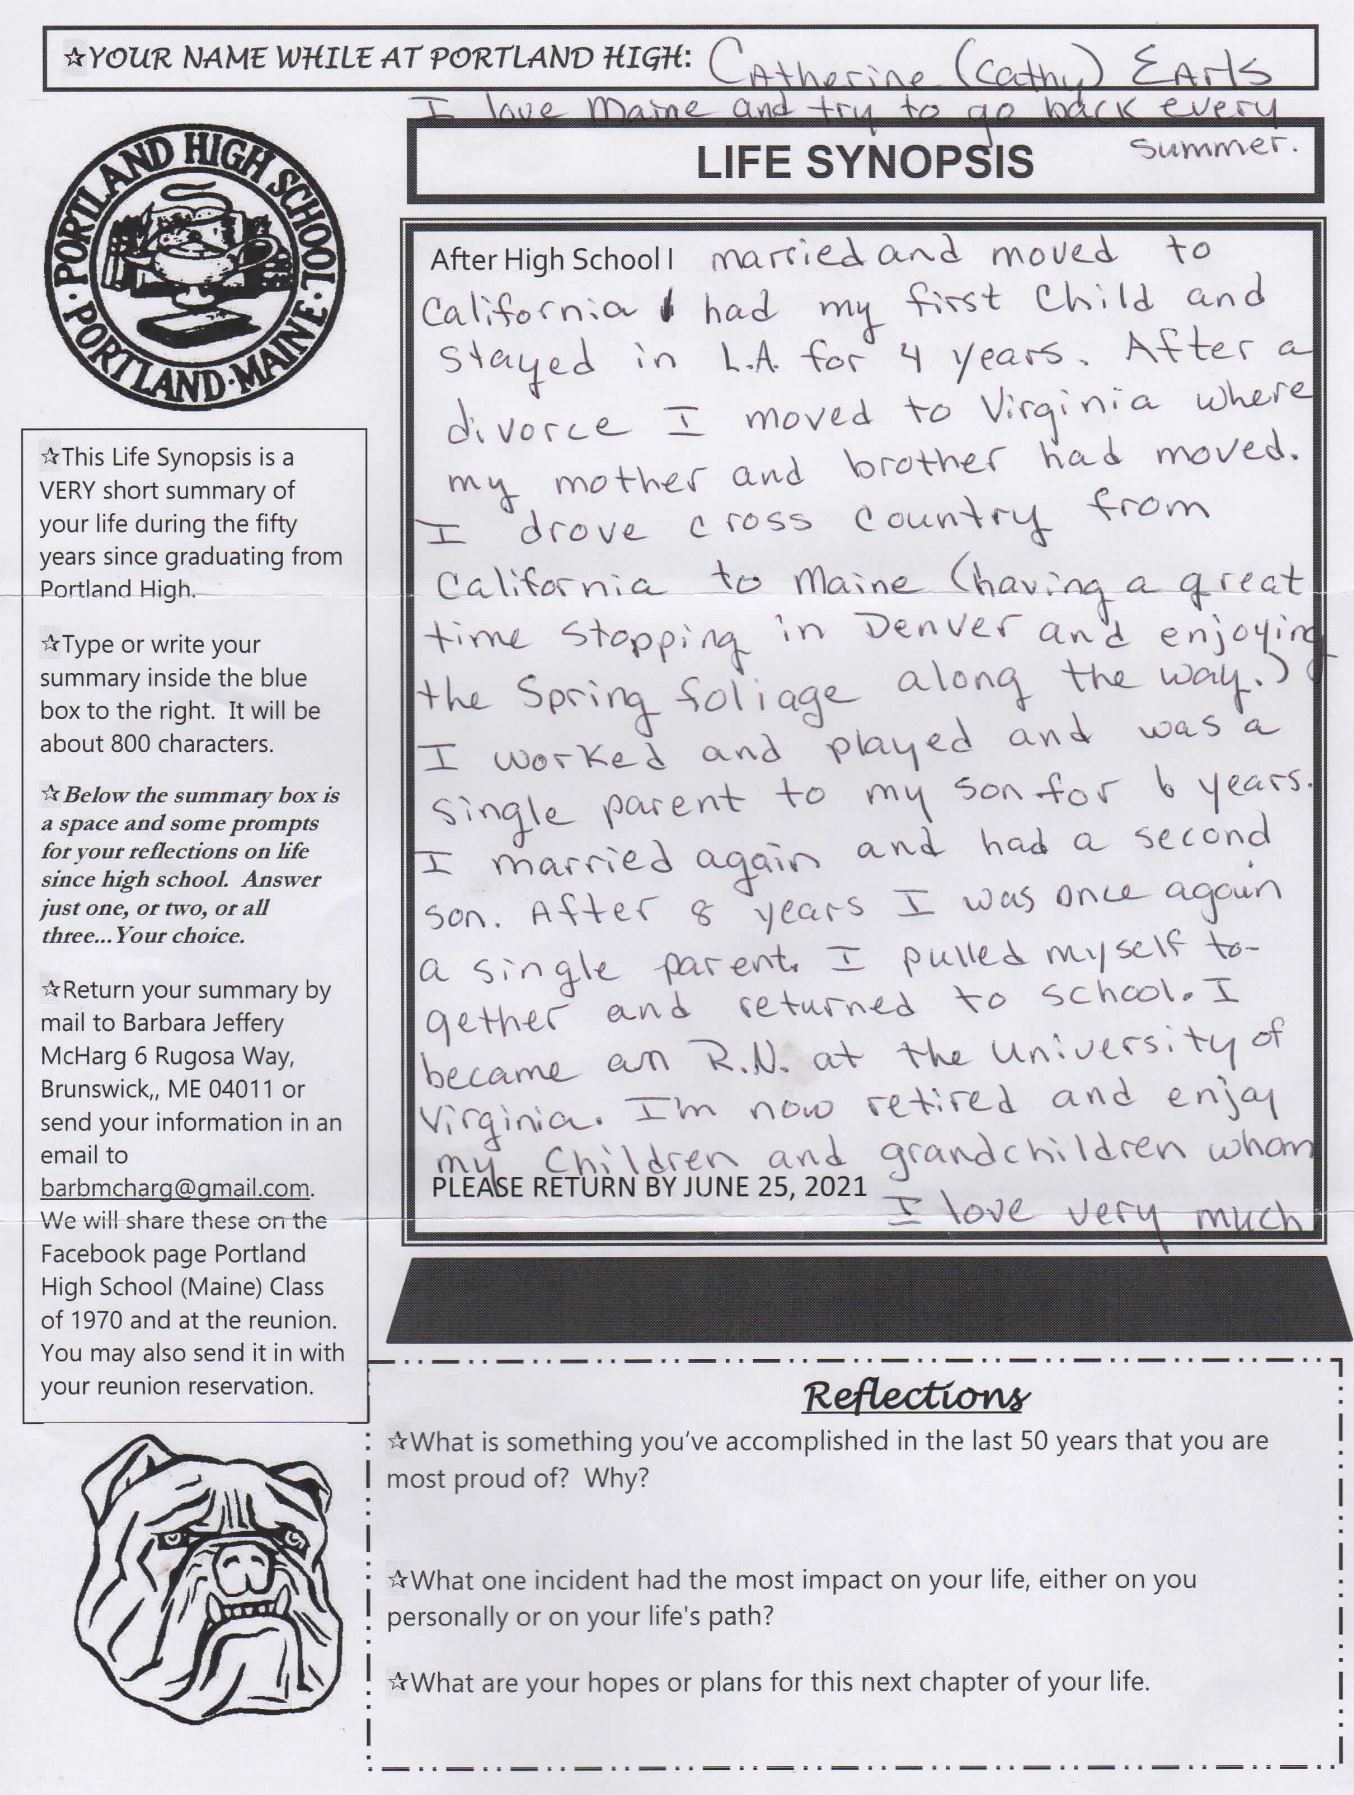 ☆YOUR NAME WHILE AT PORTLAND HIGH: Catherine (Cathy) Earls
I love Maine and try to go back every
summer.
LIFE SYNOPSIS
PORTLAND HIGH SCHOOL
· PORTLAND · MAINE ·
☆This Life Synopsis is a
VERY short summary of
your life during the fifty
years since graduating from
Portland High.
☆Type or write your
summary inside the blue
box to the right. It will be
about 800 characters.
☆Below the summary box is
a space and some prompts
for your reflections on life
since high school. Answer
just one, or two, or all
three...Your choice.
☆Return your summary by
mail to Barbara Jeffery
McHarg 6 Rugosa Way,
Brunswick,, ME 04011 or
send your information in an
email to
barbmcharg@gmail.com.
We will share these on the
Facebook page Portland
High School (Maine) Class
of 1970 and at the reunion.
You may also send it in with
your reunion reservation.
After High School I married and moved to
California I had my first child and
stayed in L.A. for 4 years. After a
divorce I moved to Virginia where
my mother and brother had moved.
I drove cross country from
California to Maine (having a great
time stopping in Denver and enjoying
the Spring foliage along the way.)
I worked and played and was a
single parent to my son for 6 years.
I married again and had a second
son. After 8 years I was once again
a single parent. I pulled myself to-
gether and returned to school. I
became an R.N. at the University of
Virginia. I'm now retired and enjoy
my children and grandchildren whom
PLEASE RETURN BY JUNE 25, 2021
I love very much
Reflections
☆What is something you've accomplished in the last 50 years that you are
most proud of? Why?
☆What one incident had the most impact on your life, either on you
personally or on your life's path?
☆What are your hopes or plans for this next chapter of your life.